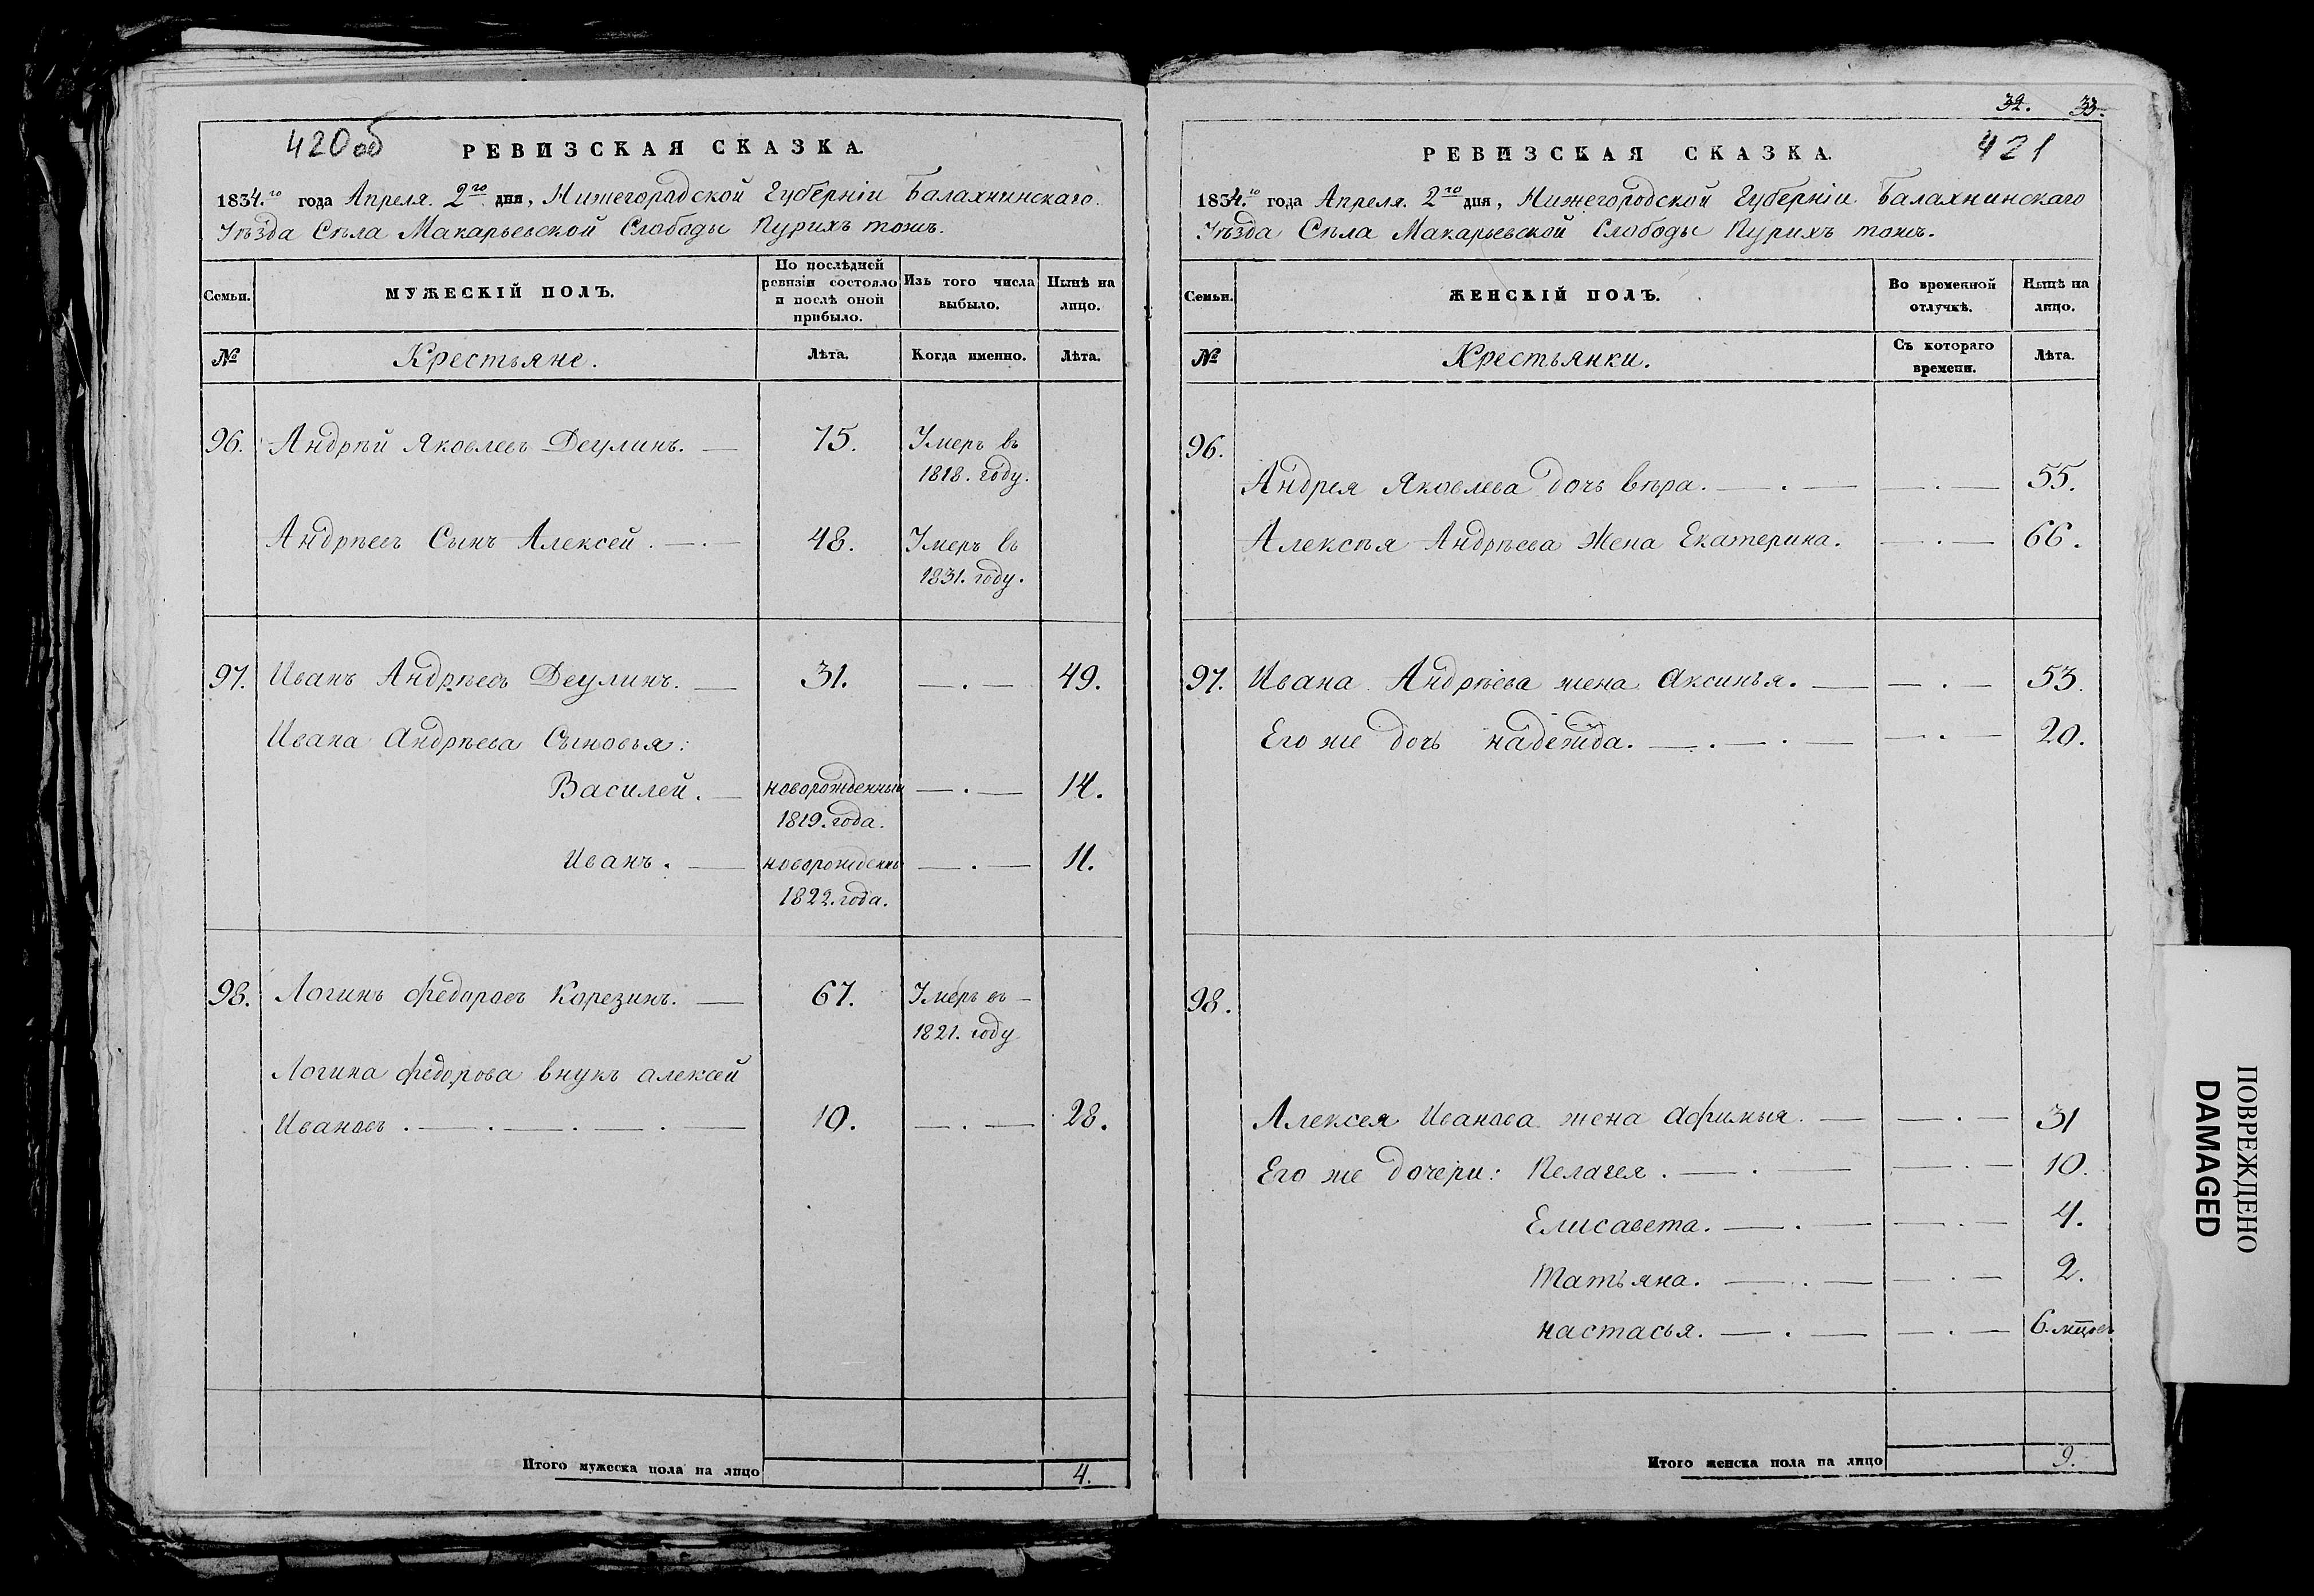 420об
РЕВИЗСКАЯ СКАЗКА.
1834.го года Апреля. 2го дня, Нижегорадской Губернiи Балахнинскаго.
Уѣзда Сѣла Макарьевской Слободы Пурихъ тожъ.
Семьи. МУЖЕСКIЙ ПОЛЪ. По послѣдней ревизiи состояло и послѣ оной прибыло. Изъ того числа выбыло. Нынѣ на лицо.
№ Крестьяне. Лѣта. Когда именно. Лѣта.
96. Андрѣй Яковлевъ Деулинъ. — 75. Умеръ въ
1818. году.
Андрѣевъ Сынъ Алексей . — . — 48. Умеръ въ
1831. году.
97. Иванъ Андрѣевъ Деулинъ. — 31. — . — 49.
Ивана Андрѣева Сыновья:
Василей. — новорожденный — . — 14.
1819. года.
Иванъ. — новорожденны — . — 11.
1822. года.
98. Логинъ Федоровъ Корезинъ. — 67. Умеръ въ —
1821. году
Логина Федорова внукъ алексей
Ивановъ . — . — . — . — 10. — . — 28.
Итого мужеска пола на лицо 4.
32. 33.
421
РЕВИЗСКАЯ СКАЗКА.
1834.го года Апреля. 2го дня, Нижегородской Губернiи. Балахнинскаго
Уѣзда Сѣла Макарьевской Слободы Пурихъ тожъ.
Семьи. ЖЕНСКIЙ ПОЛЪ. Во временной отлучкѣ. Нынѣ на лицо.
№ Крестьянки. Съ котораго времени. Лѣта.
96.
Андрея Яковлева дочь вѣра. — . — — . — 55.
Алексѣя Андрѣева Жена Екатерина. — . — 66.
97. Ивана Андрѣева жена Аксинья. — — . — 53.
Его же дочь надежда. — . — . — — . — 20.
98.
Алексея Иванова жена Афимья. — — . — 31
Его же дочери: Пелагея . — . — — . — 10.
Елисавета. — . — — . — 4.
Татьяна. — . — — . — 2.
настасья. — . — — . — 6. мцовъ
Итого женска пола на лицо 9.
ПОВРЕЖДЕНО
DAMAGED